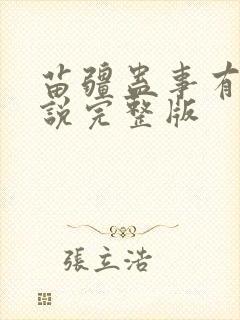 苗疆蛊事有
說完整版
張立浩